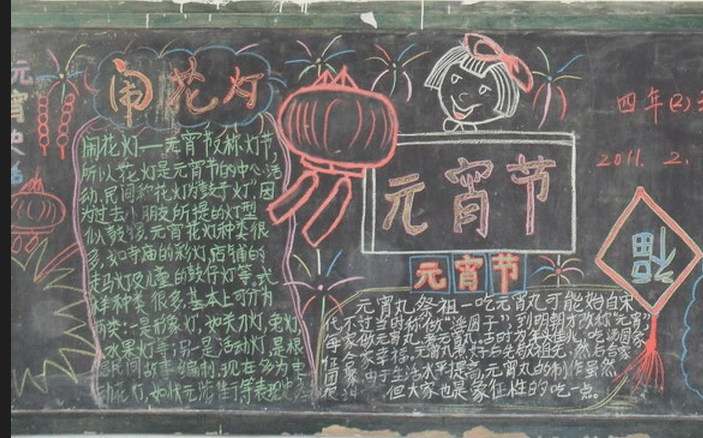 闹花灯
闹花灯——元宵节又称灯节,
所以花灯是元宵节的中心活
动.民间称花灯为鼓子灯,因
为过去小朋友所提的灯型
似鼓锣.元宵花灯种类很
多,如寺庙的彩灯,店铺的
走马灯及儿童的鼓仔灯等,式
样种类很多,基本上可分为
两类:一是形象灯,如关刀灯,兔灯,
水果灯等;另一是活动灯,是根
民间故事编制,现在多为电
动花灯,如状元游街等表现
元宵节
元宵节
元宵丸祭祖一吃元宵丸可能始自宋
代,不过当时称做"浮圆子",到明朝才改称"元宵"
由于生活水平提高,元宵丸的制作虽然
但大家也是象征性的吃一点。
四年(2)
2011. 2.
福
元宵